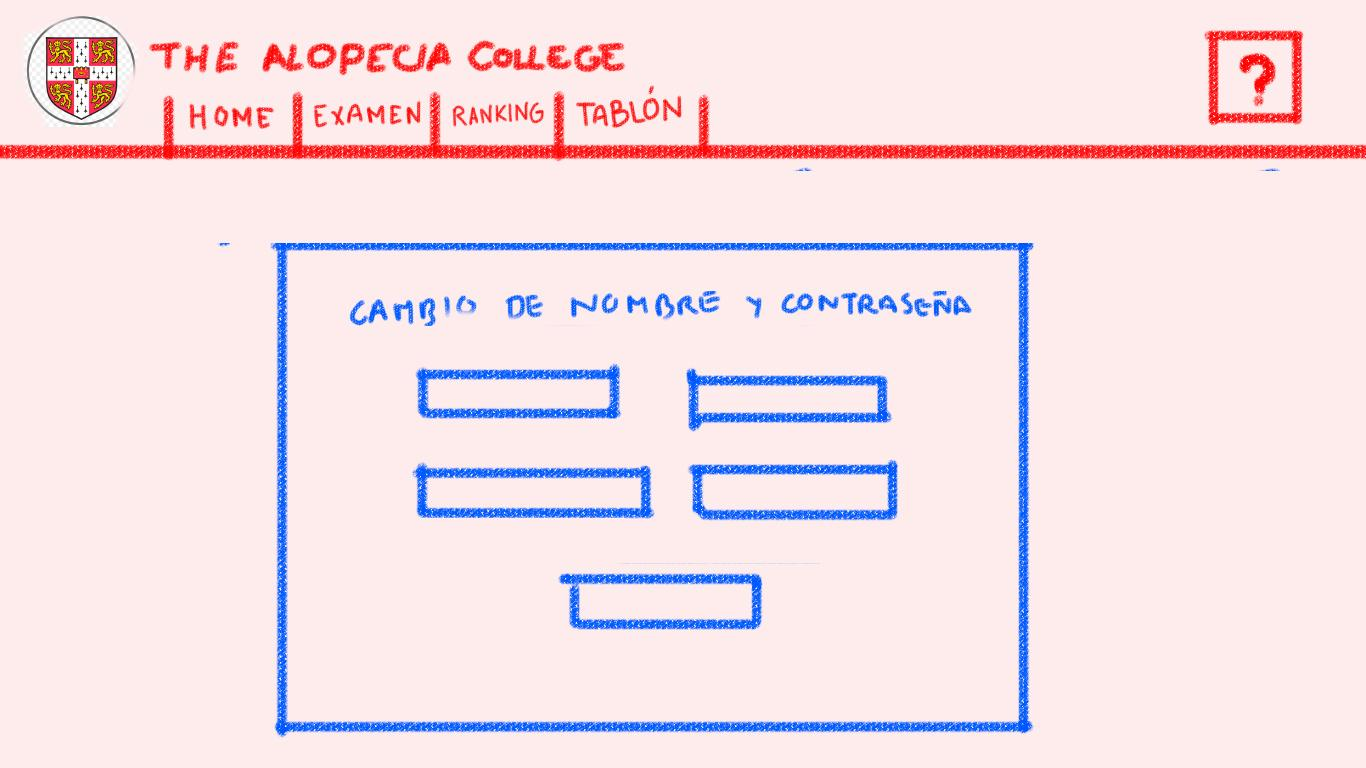 THE ALOPECIA COLLEGE
HOME EXAMEN RANKING TABLÓN
?
CAMBIO DE NOMBRE Y CONTRASEÑA